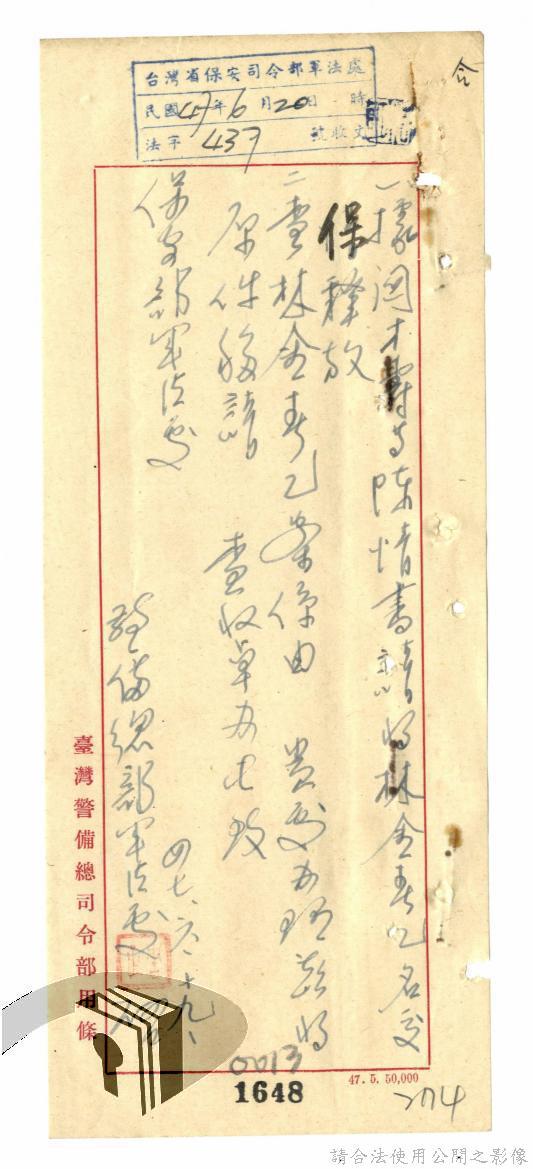 台灣省保安司令部軍法處
民國47年6月20日 時
法字 437 號收文
一、據闕才壽等陳情書請將林金春乙名交
保釋放
二、查林金春乙案係由 貴處辦理茲將
原件移請 查收卓辦
此致
保安部軍法處
警備總部軍法處
四七、六、十九、
臺灣警備總司令部用條
0013
1648
47. 5. 50,000
204
請合法使用公開之影像